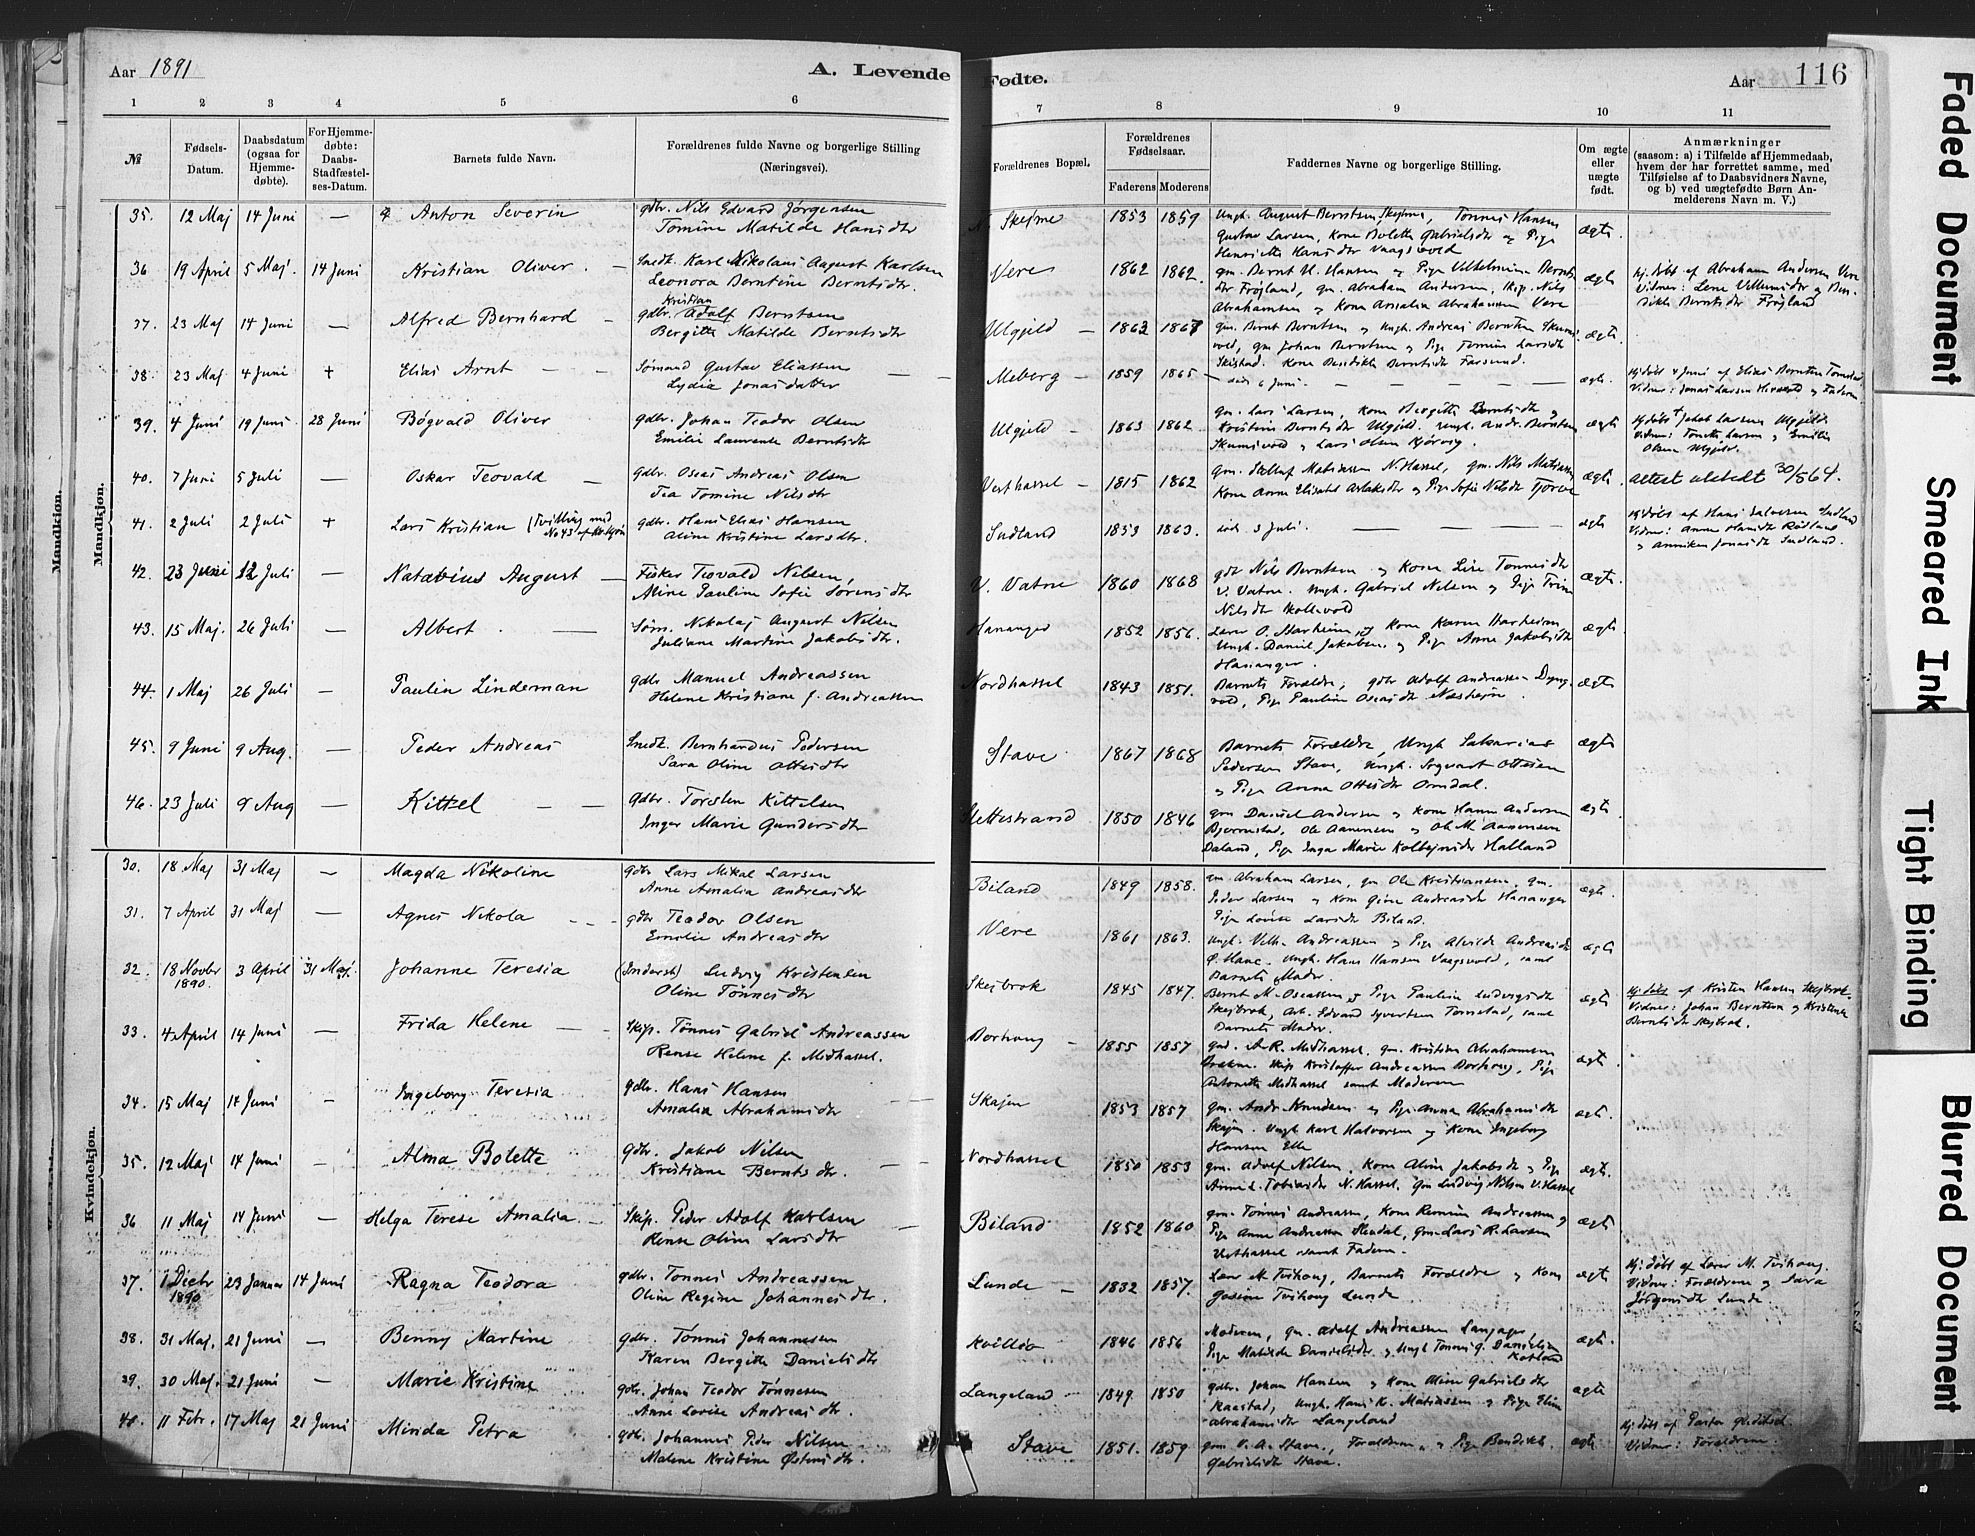 Aar 1891
A. Levende Fødte.
Aar 116
1 2 3 4 5 6 7 8 9 10 11
№
Fødsels-Datum.
Daabsdatum (ogsaa for Hjemme-døbte).
For Hjemme-døbte: Daabs-Stadfæstel-ses-Datum.
Barnets fulde Navn.
Forældrenes fulde Navne og borgerlige Stilling (Næringsvei).
Forældrenes Bopæl.
Forældrenes Fødselsaar.
Faderens Moderens
Faddernes Navne og borgerlige Stilling.
Om ægte eller uægte født.
Anmærkninger
(saasom: a) i Tilfælde af Hjemmedaab, hvem der har forrettet samme, med Tilføielse af to Daabsvidners Navne, og b) ved uægtefødte Børn An-melderens Navn m. V.)
Mandkjøn.
Mandkjøn.
35. 12 Maj 14 Juni — Anton Severin gdbr. Nils Edvard Jørgensen
Tomine Matilde Hansdtr
Skejbne 1853 1859 Ungk. August Berntsen Skejbne, Tønnes Hansen
Gustav Larsen, Kone Bolette Gabrielsdtr og Pige
Henriette Hansdtr Vaagsvold
ægte.
36 19 April 5 Maj. 14 Juni Kristian Oliver. Smedk. Karl Nikolaus August Karlsen
Leonora Berntine Berntsdtr.
Vere 1862 1862. gm. Bernt H. Hansen og Pige Vilhelmine Bernts
dtr Frøjland, gm. Abraham Andersen, Skip. Nils
Abrahamsen og Kone Amalia Abrahamsen Vere
ægte
Hj. døbt af Abraham Andersen Vere
Vidner: Lene Villumsdtr og Ben-
dikte Berntsdtr Frøjland
37. 23 Maj 14 Juni — Alfred Bernhard — gdbr. Kristian Adolf Berntsen
Bergitte Matilde Berntsdtr
Ulgjeld — 1863 1867 gm. Bernt Berntsen og Ungk. Andreas Berntsen Skums
vold, gm Johan Berntsen og Pige Tomine Larsdtr
Skistad. Kone Bendikte Berntsdtr Farsund.
ægte.
38. 23 Maj 4 Juni + Elias Arnt — Sømand Gustav Eliassen
Lydia Jonasdatter
Meberg — 1859 1865 — død 6 Juni. — ægte.
Hj. døbt 4 Juni af Elias Berntsen Tomstad
Vidner: Jonas Larsen og Faderen
39. 4 Juni 19 Juni. 28 Juni Bøgvald Oliver gdbr. Johan Teodor Olsen
Emilie Laurense Berntsdtr
Ulgjeld — 1863 1862 gm. Lars Larsen, Kone Bergitte Berntsdtr og
Kristine Berntsdtr Ulgjeld. Ungk. Andr. Berntsen
Skumsvold og Lars Olsen Kjørvig.
ægte
Hj. døbt af Jakob Larsen Ulgjeld.
Vidner: Tonette Larsen og Emilie
Olsen Ulgjeld.
40. 7 Juni 5 Juli — Oskar Teovald — gdbr. Oseas Andreas Olsen
Tea Tomine Nilsdtr
Vesthassel — 1815 1862 gm. Mathiassen N. Hassel, gm. Nils Mathiassen
Kone Anne Elisabet Aslaksdtr og Pige Sofie Nilsdtr Tjørve
ægte. Attest utstedt 30/5 64.
41. 2 Juli 2 Juli + Lars Kristian (Tvilling med
No 43 af Kv. Kjøn) gdbr. Hans Elias Hansen
Aline Kristine Larsdtr.
Sudland 1853 1863. død. 3 Juli. — ægte
Hj. døbt af Hans Salvesen Sudland
Vidner: Anna Hansdtr Rødland
og Anniken Jonasdtr Sudland.
42. 23 Juni 12 Juli — Natavius August — Fisker Teovald Nilsen,
Mine Pauline Sofie Sørensdtr
V. Vatne 1860 1868 gdbr Nils Berntsen og Kone Lise Tønnesdtr
V. Vatne. Ungk. Gabriel Nelsen og Pige Trine
Nilsdtr Kollevold
ægte.
43. 15 Maj. 26 Juli — Albert. — Søm. Nikolaj August Nilsen
Juliane Martine Jakobsdtr.
Hananger 1852 1856. Lærer O. Starheim, og Kone Karen Starheim
Ungk. Daniel Jakobsen og Pige Anne Jakobsdtr
Hananger.
ægte.
44. 1 Maj 26 Juli — Paulin Lindeman gdbr Manuel Andreassen
Helene Kristiane f. Andreassen
Nordhassel 1843 1851. Barnets Forældre, gdbr Adolf Andreassen Dyng-
vold, Pige Pauline Oseasdtr Næsheim.
ægte
45. 9 Juni 9 Aug. — Peder Andreas Smedk. Bernhardus Pedersen
Sara Oline Ottesdtr
Stave 1867 1868 Barnets Forældre, Ungk Sakarias
Pedersen Stave, Ungk. Sigvart Ottesen
og Pige Anna Ottesdtr Omdal.
ægte
46. 23 Juli 9 Aug — Kittel — gdbr. Torsten Kittelsen
Inger Marie Gundersdtr
Slettestrand 1850 1846 gm Daniel Andersen og Kone Hanne Andersen
Bjørnestad, Ole Aanensen og Ole M. Aanensen
Daland, Pige Inga Marie Kolbejnsdtr Halland
ægte
Kvindekjøn.
30. 18 Maj 31 Maj — Magda Nikoline gdbr Lars Mikal Larsen
Anne Amalia Andreasdtr
Biland 1849 1858. gm. Abraham Larsen, gm Ole Kristiansen, gm.
Peder Larsen og Kone Gine Andreasdtr Hananger
Pige Lovise Larsdtr Biland.
ægte.
31. 7 April 31 Maj — Agnes Nikola — gdbr Teodor Olsen
Emelie Andreasdtr
Vere 1861 1863. Ungk. Vilh. Andreassen og Pige Alvilde Andreasdtr
Ø. Hane. Ungk. Hans Hansen Vaagsvold, samt
Barnets Moder.
ægte
32. 18 Novbr 1890. 3 April 31 Maj. Johanne Teresia (Inderst) Ludvig Kristensen
Oline Tønnesdtr
Skejbrok 1845 1847. Bernt M. Oseassen og Pige Pauline Ludvigsdtr
Skejbrok, Arb. Edvard Syvertsen Tomstad, samt
Barnets Moder.
ægte
Hj. døbt af Kristen Hansen Skejbrok.
Vidner: Johan Berntsen og Kristense
Berntsdtr Skejbrok.
33. 4 April 14 Juni — Frida Helene — Skip. Tønnes Gabriel Andreassen
Rense Helene f. Midhassel.
Borhaug — 1855 1857 gm. A. R. Midhassel, gm. Kristian Abrahamsen
Brekne. Skip Kristoffer Andreassen Borhaug, Pige
Antonette Midhassel samt Moderen
ægte
34. 15 Maj 14 Juni — Ingeborg Teresia gdbr. Hans Hansen
Amalia Abrahamsdtr
Skajen 1853 1857. gm. Andr. Knudsen og Pige Anna Abrahamsdtr
Skajen. Ungk Karl Halvorsen og Kone Ingeborg
Hansen Elle
ægte.
35. 12 Maj 14 Juni — Alma Bolette gdbr. Jakob Nilsen
Kristiane Berntsdtr.
Nordhassel 1850 1853 gm. Adolf Nilsen, Kone Aline Jakobsdtr og Pige
Anne L. Tobiasdtr N. Hassel, gm Ludvig Nilsen V. Hassel
ægte.
36 11 Maj 14 Juni — Helga Terese Amalia. — Skip. Peder Adolf Karlsen
Rense Oline Larsdtr
Biland 1852 1860 gm. Tønnes Andreassen, Kone Remine Andreassen og
Pige Anne Andreassen Heskdal, gm. Lars R. Larsen
Vesthassel samt Faderen.
ægte
37. 1 Decbr 1890 23 Januar 14 Juni Ragna Teodora gdbr. Tønnes Andreassen
Oline Regine Johannesdtr.
Lunde — 1832 1857. Lærer M. Tvihoug, Barnets Forældre og Kone
Gosine Tvihoug Lunde
ægte
Hj. døbt af Lærer M. Tvihoug.
Vidner: Forældrene og Sara
Jørgensdtr Lunde
38. 31 Maj. 21 Juni — Benny Martine gdbr. Tønnes Johannesen
Karen Bergitte Danielsdtr
Kvilljo 1846 1856 Moderen, gm. Adolf Andreassen Langager,
Pige Matilde Danielsdtr og Ungk Tønnes G. Danielsen
ægte.
39. 30 Maj. 21 Juni — Marie Kristine gdbr. Johan Teodor Tønnesen
Anne Lovise Andreasdtr.
Langeland — 1849. 1850 gdbr. Johan Hansen og Kone Aline Gabrielsdtr
Raastad, Ungk. Hans K. Mathiassen og Pige Eline
Abrahamsdtr Langeland
ægte
40. 11 Febr. 17 Maj 21 Juni Minda Petra gdbr. Johannes Peder Nilsen
Malene Kristine Østensdtr.
Stave 1851. 1859 gm. V. A. Stave, Forældrene og Pige Bendikte
Gabrielsdtr Stave.
ægte
Hj. døbt af Pastor Gleditsch
Vidner: Forældrene
Faded Document
Smeared Ink
Tight Binding
Blurred Document